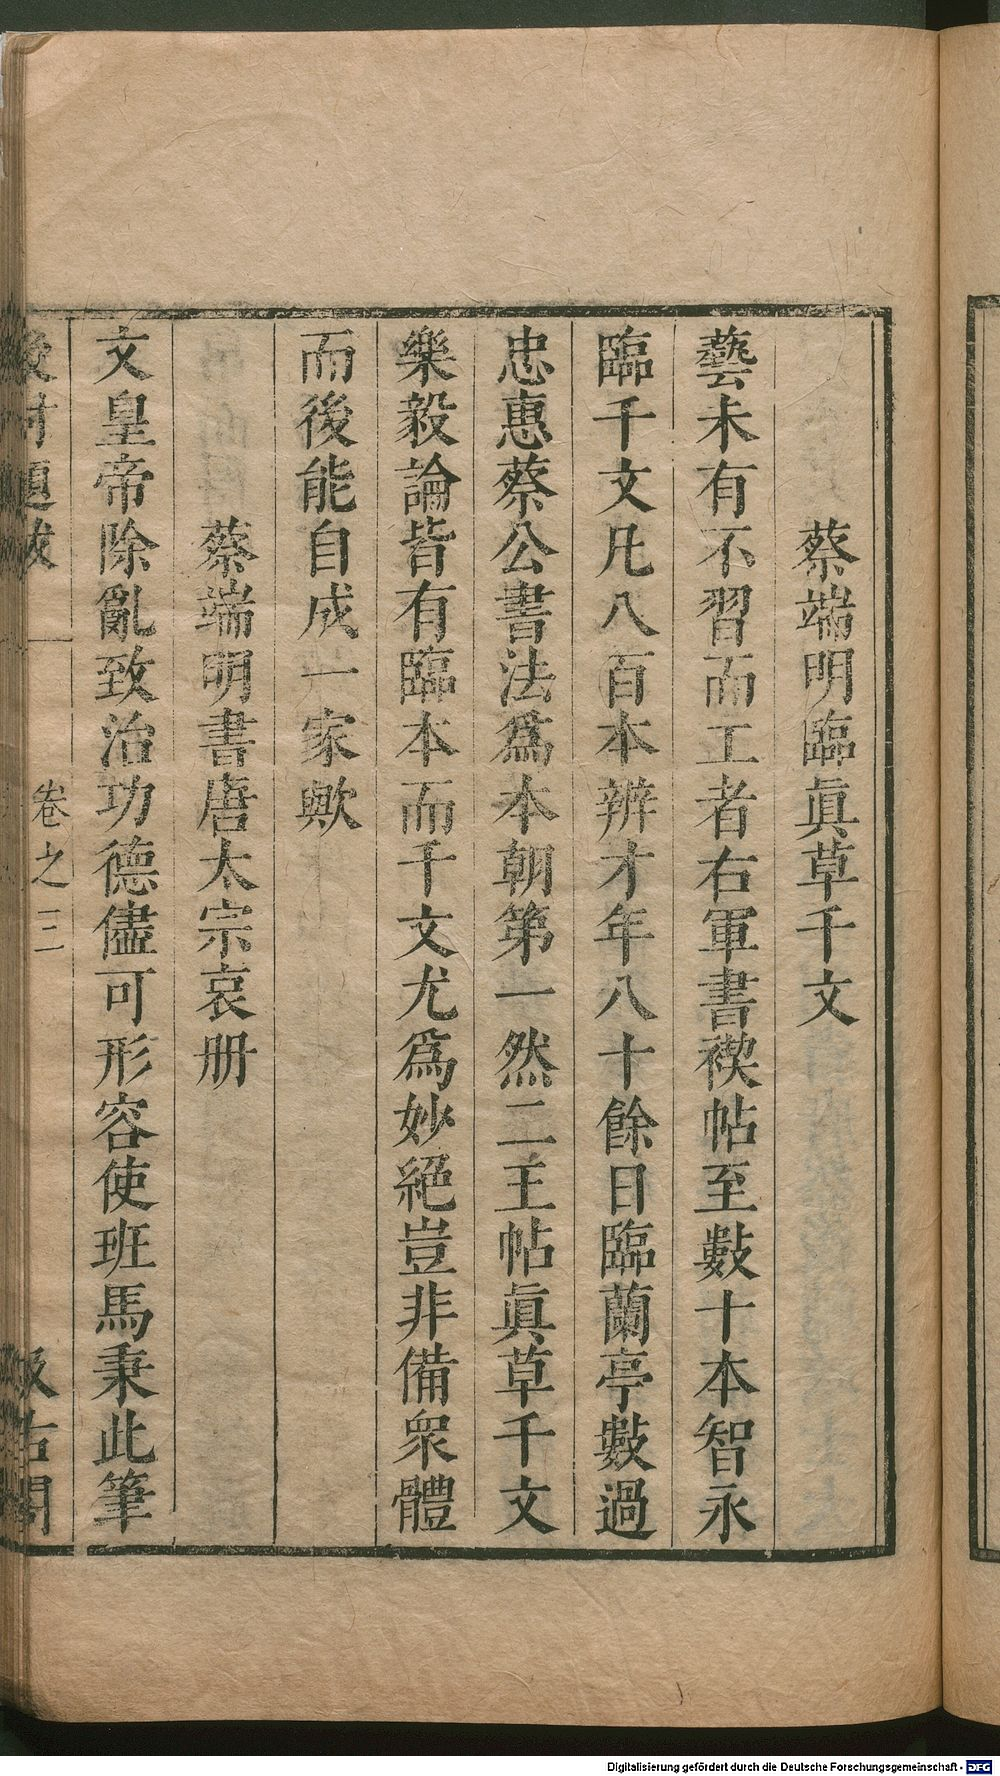 蔡端明臨眞草千文
藝未有不習而工者右軍書禊帖至數十本智永
臨千文凡八百本辨才年八十餘日臨蘭亭數過
忠惠蔡公書法爲本朝第一然二王帖眞草千文
樂毅論皆有臨本而千文尤爲妙絕豈非備衆體
而後能自成一家歟
蔡端明書唐太宗哀册
文皇帝除亂致治功德儘可形容使班馬秉此筆
後村題跋 卷之三 汲古閣
Digitalisierung gefördert durch die Deutsche Forschungsgemeinschaft - DFG